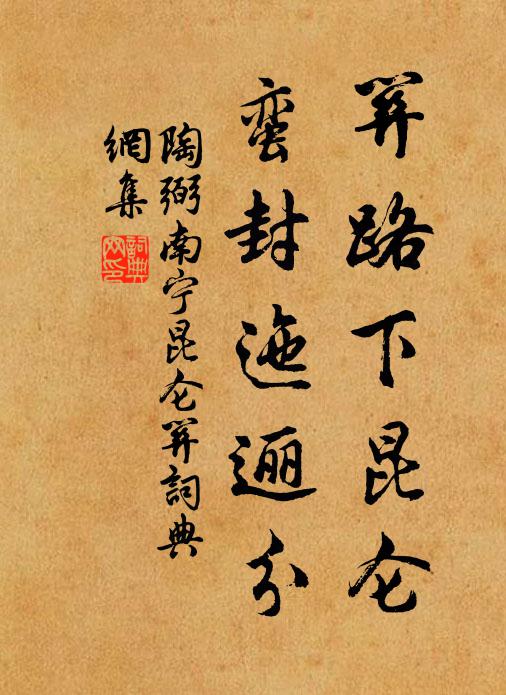 关路下昆仑
蛮封迤逦分
陶弼南宁昆仑关詞典
網集
詞典
网印